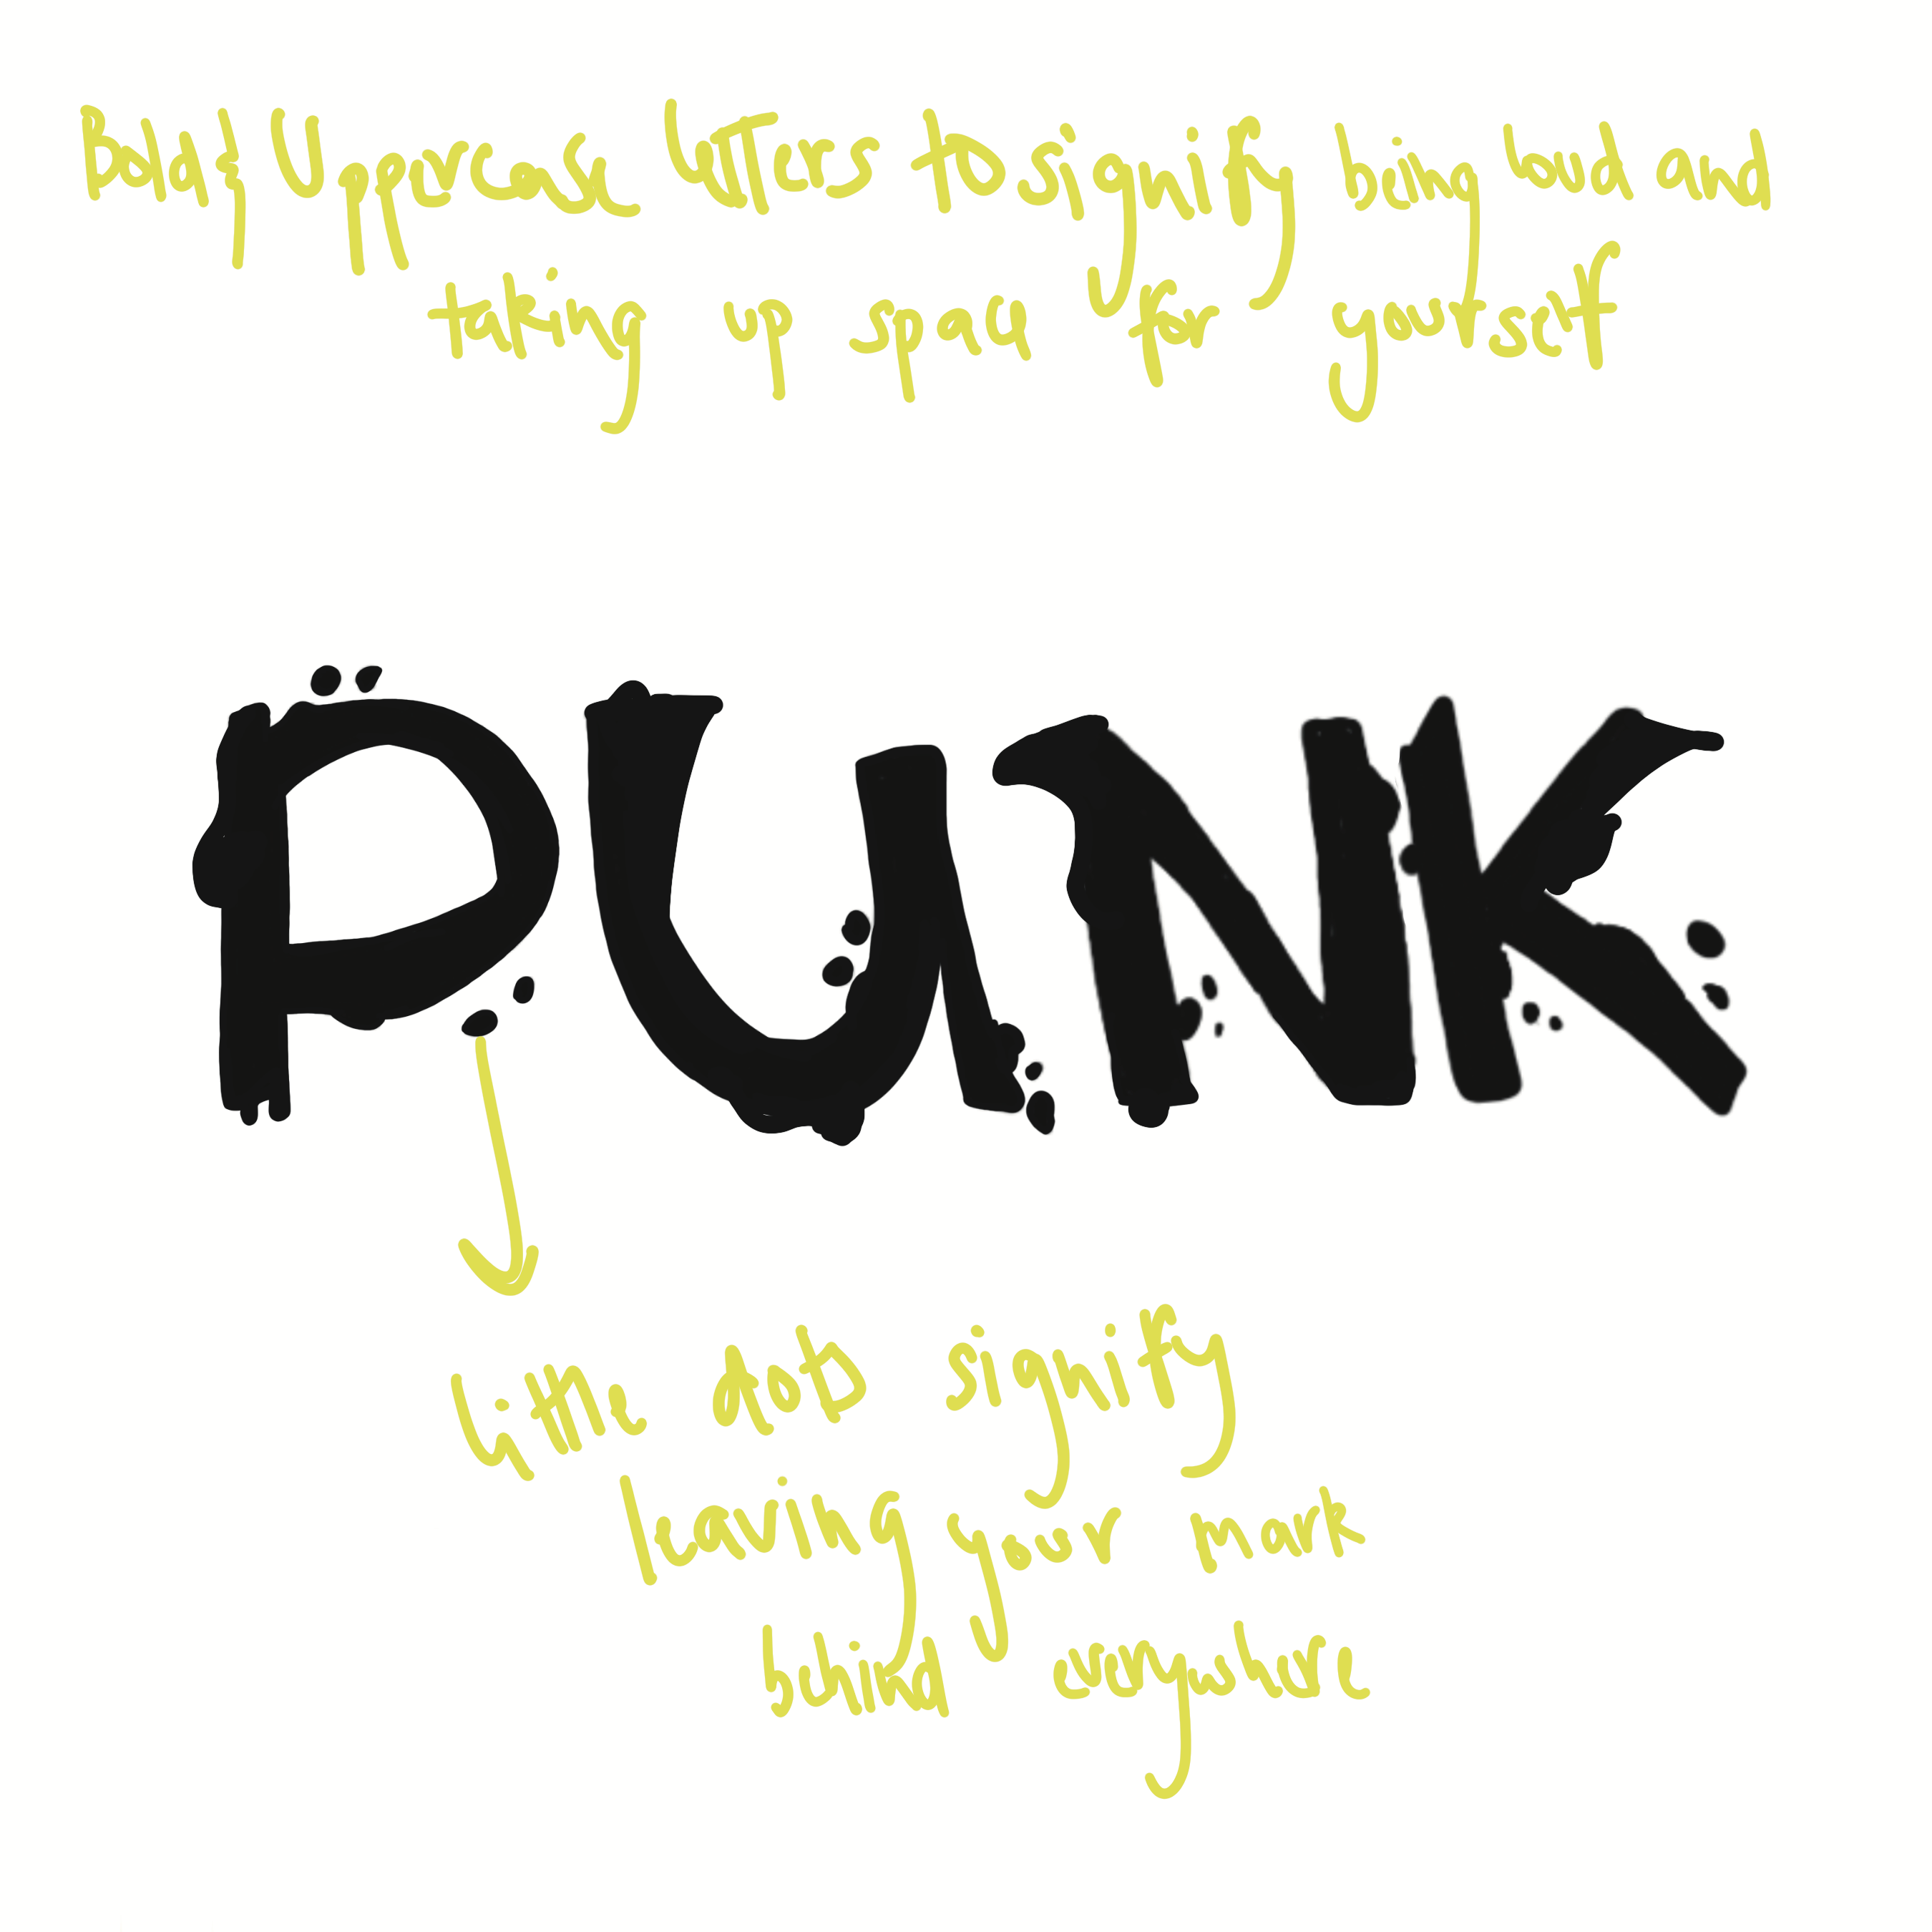 Bold Uppercase letters to signify being loud and
taking up space for yourself
PUNK
little dots signify
leaving your mark
behind everywhere